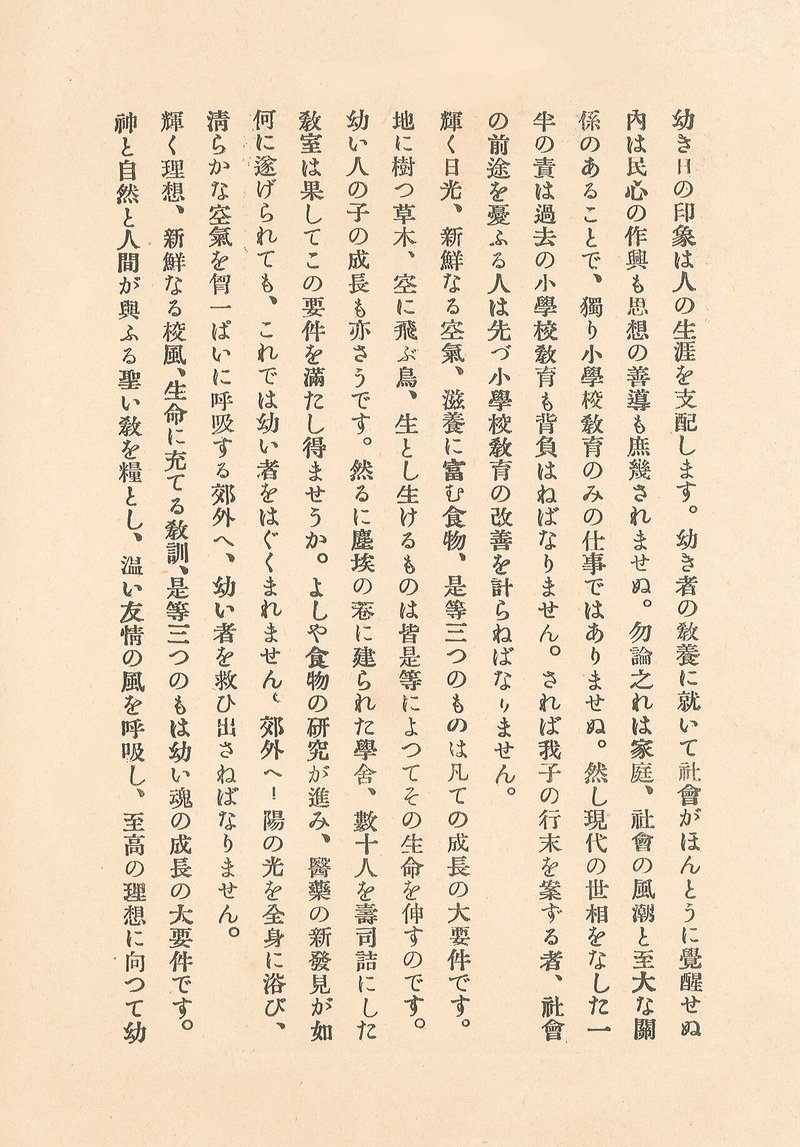 幼き日の印象は人の生涯を支配します。幼き者の敎養に就いて社會がほんとうに覺醒せぬ
內は民心の作興も思想の善導も庶幾されませぬ。勿論之れは家庭、社會の風潮と至大な關
係のあることで、獨り小學校敎育のみの仕事ではありませぬ。然し現代の世相をなした一
半の責は過去の小學校敎育も背負はねばなりません。されば我子の行末を案ずる者、社會
の前途を憂ふる人は先づ小學校敎育の改善を計らねばなりません。
輝く日光、新鮮なる空氣、滋養に富む食物、是等三つのものは凡ての成長の大要件です。
地に樹つ草木、空に飛ぶ鳥、生とし生けるものは皆是等によつてその生命を伸すのです。
幼い人の子の成長も亦さうです。然るに塵埃の巷に建られた學舍、數十人を壽司詰にした
敎室は果してこの要件を滿たし得ませうか。よしや食物の硏究が進み、醫藥の新發見が如
何に遂げられても、これでは幼い者をはぐくまれません、郊外へ！陽の光を全身に浴び、
淸らかな空氣を胷一ぱいに呼吸する郊外へ、幼い者を救ひ出さねばなりません。
輝く理想、新鮮なる校風、生命に充てる敎訓、是等三つのもは幼い魂の成長の大要件です。
神と自然と人間が與ふる聖い敎を糧とし、溫い友情の風を呼吸し、至高の理想に向つて幼